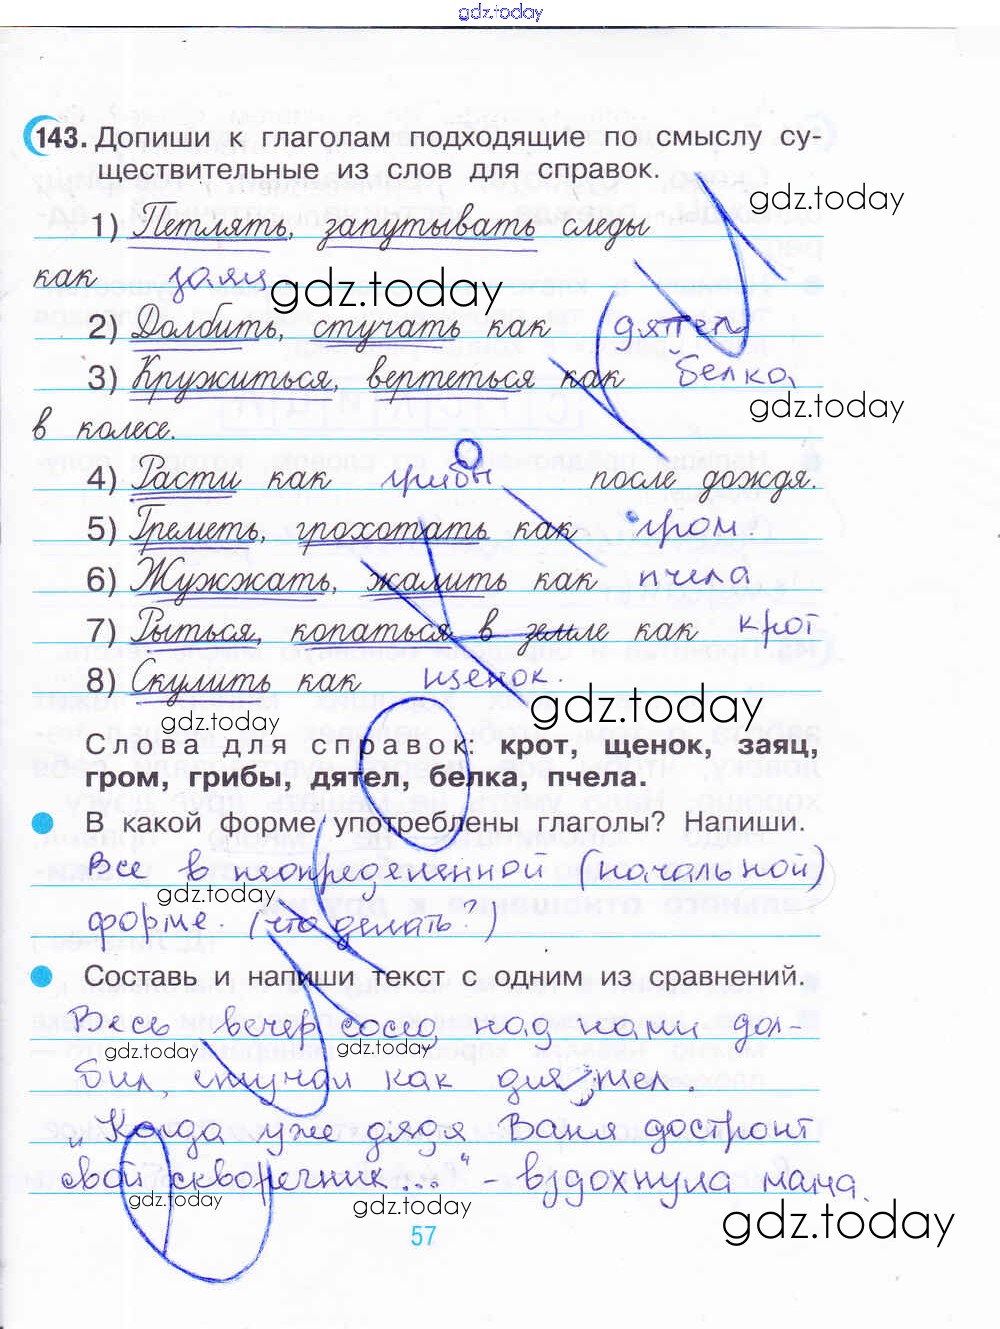 gdz.today
143. Допиши к глаголам подходящие по смыслу су-
ществительные из слов для справок.
gdz.today
1) Петлять, запутывать следы
как заяц
gdz.today
2) Долбить, стучать как дятел
3) Кружиться, вертеться как белка
gdz.today
в колесе.
4) Расти как грибы после дождя.
5) Греметь, грохотать как гром.
6) Жужжать, жалить как пчела
7) Рыться, копаться в земле как крот
8) Скулить как щенок.
gdz.today gdz.today
Слова для справок: крот, щенок, заяц,
гром, грибы, дятел, белка, пчела.
В какой форме употреблены глаголы? Напиши.
Все в неопределенной (начальной)
gdz.today gdz.today
форме. (что делать?)
Составь и напиши текст с одним из сравнений.
Весь вечер сосед над нами дол-
gdz.today gdz.today
бил, стучал как дятел.
"Когда уже дядя Ваня достроит
свой скворечник..." - вздохнула мама.
gdz.today gdz.today
57
gdz.today